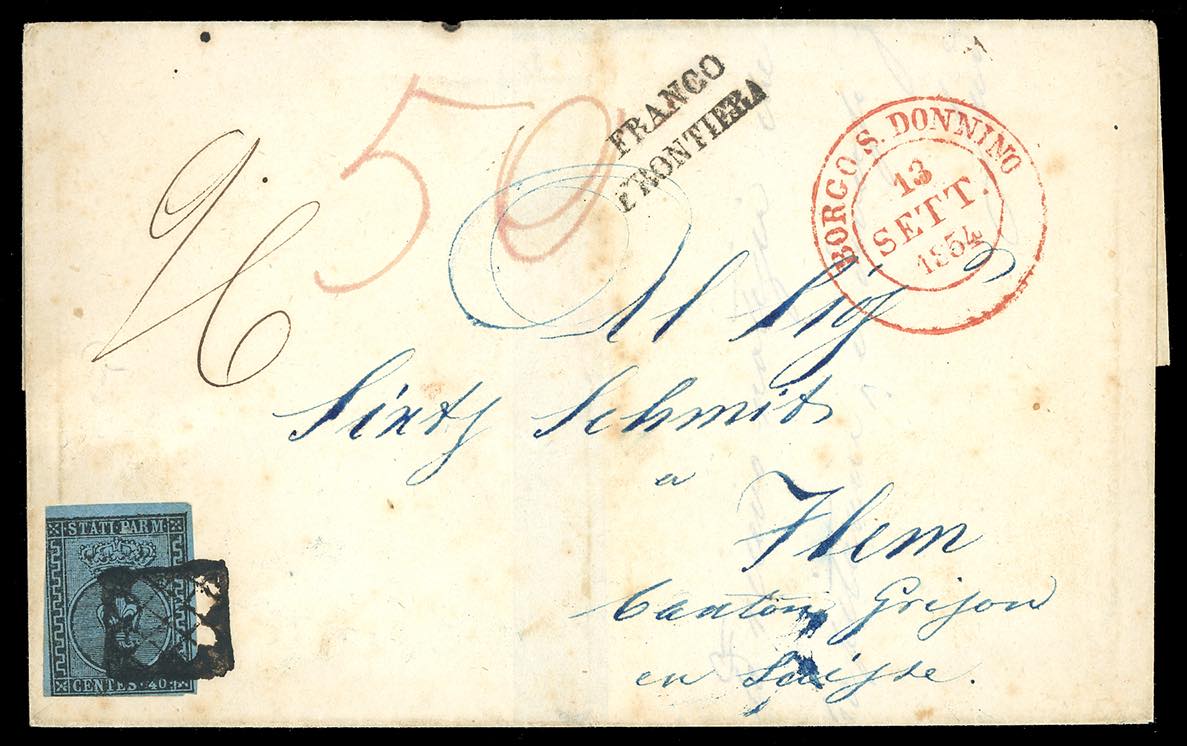 50
FRANCO
FRONTIERA
BORGO S. DONNINO
13
SETT.
1854
Al Sig
Sixty Schmid
a
Ilem
Canton Grison
en Suisse.
STATI PARM.
CENTES. 40